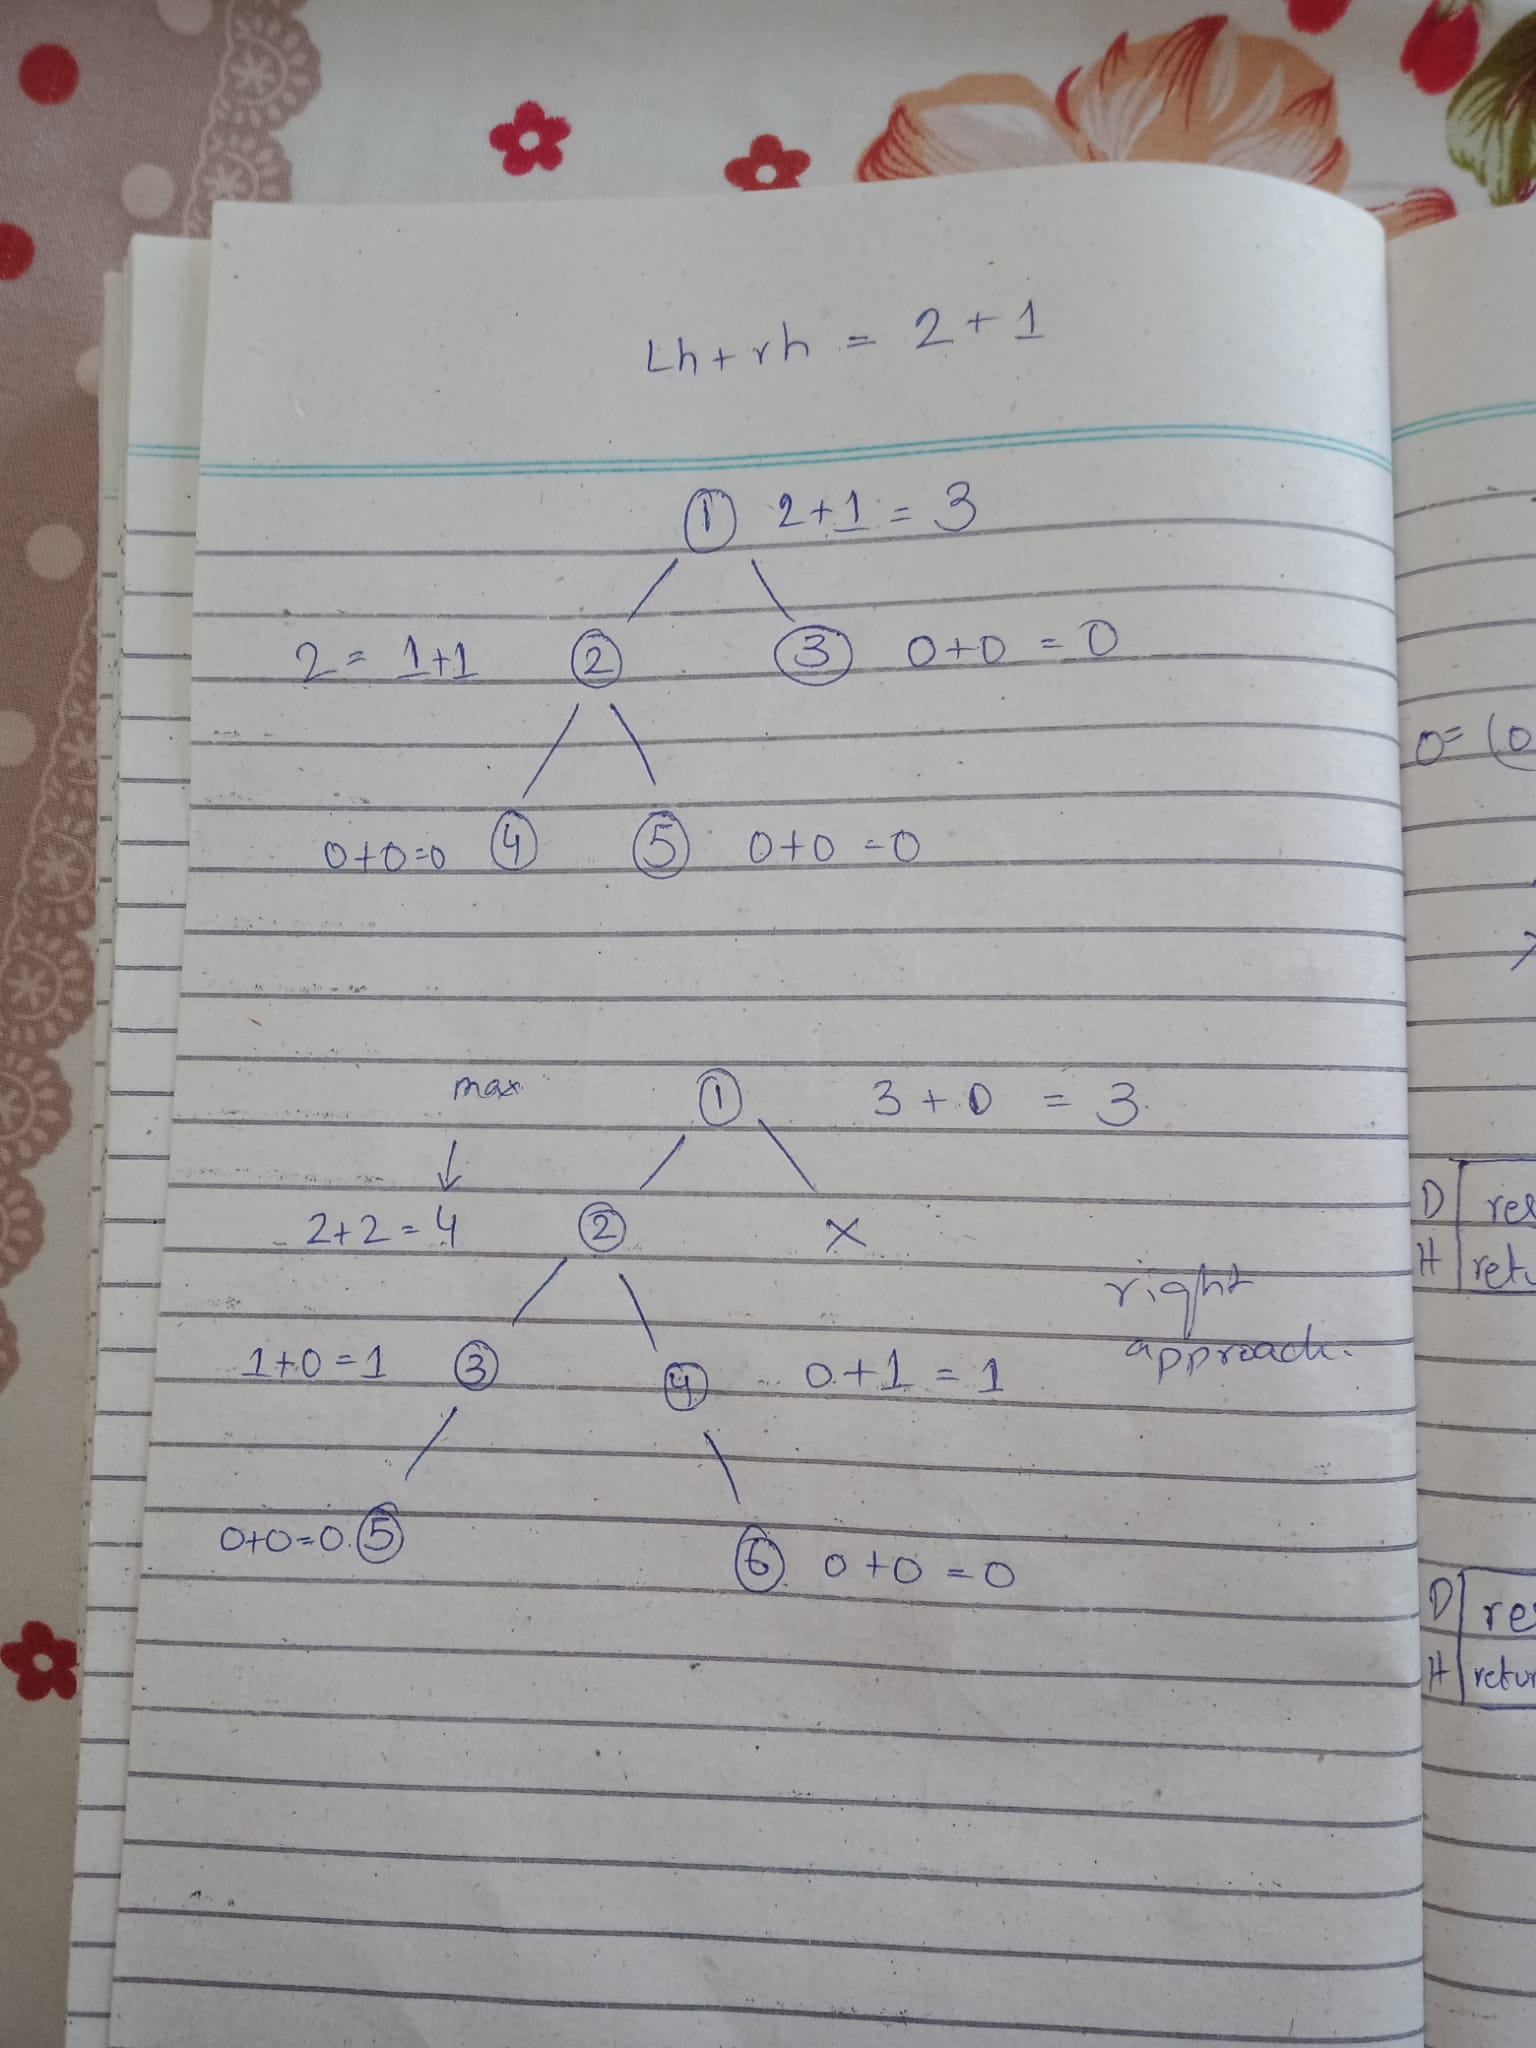 Lh + rh = 2 + 1
1 2+1 = 3
2 = 1+1 2 3 0+0 = 0
0+0=0 4 5 0+0 =0
max 1 3 + 0 = 3
2+2=4 2 X
right
approach.
1+0=1 3 4 0+1 = 1
0+0=0 5 6 0+0 =0
0= (0
D
H
D
H